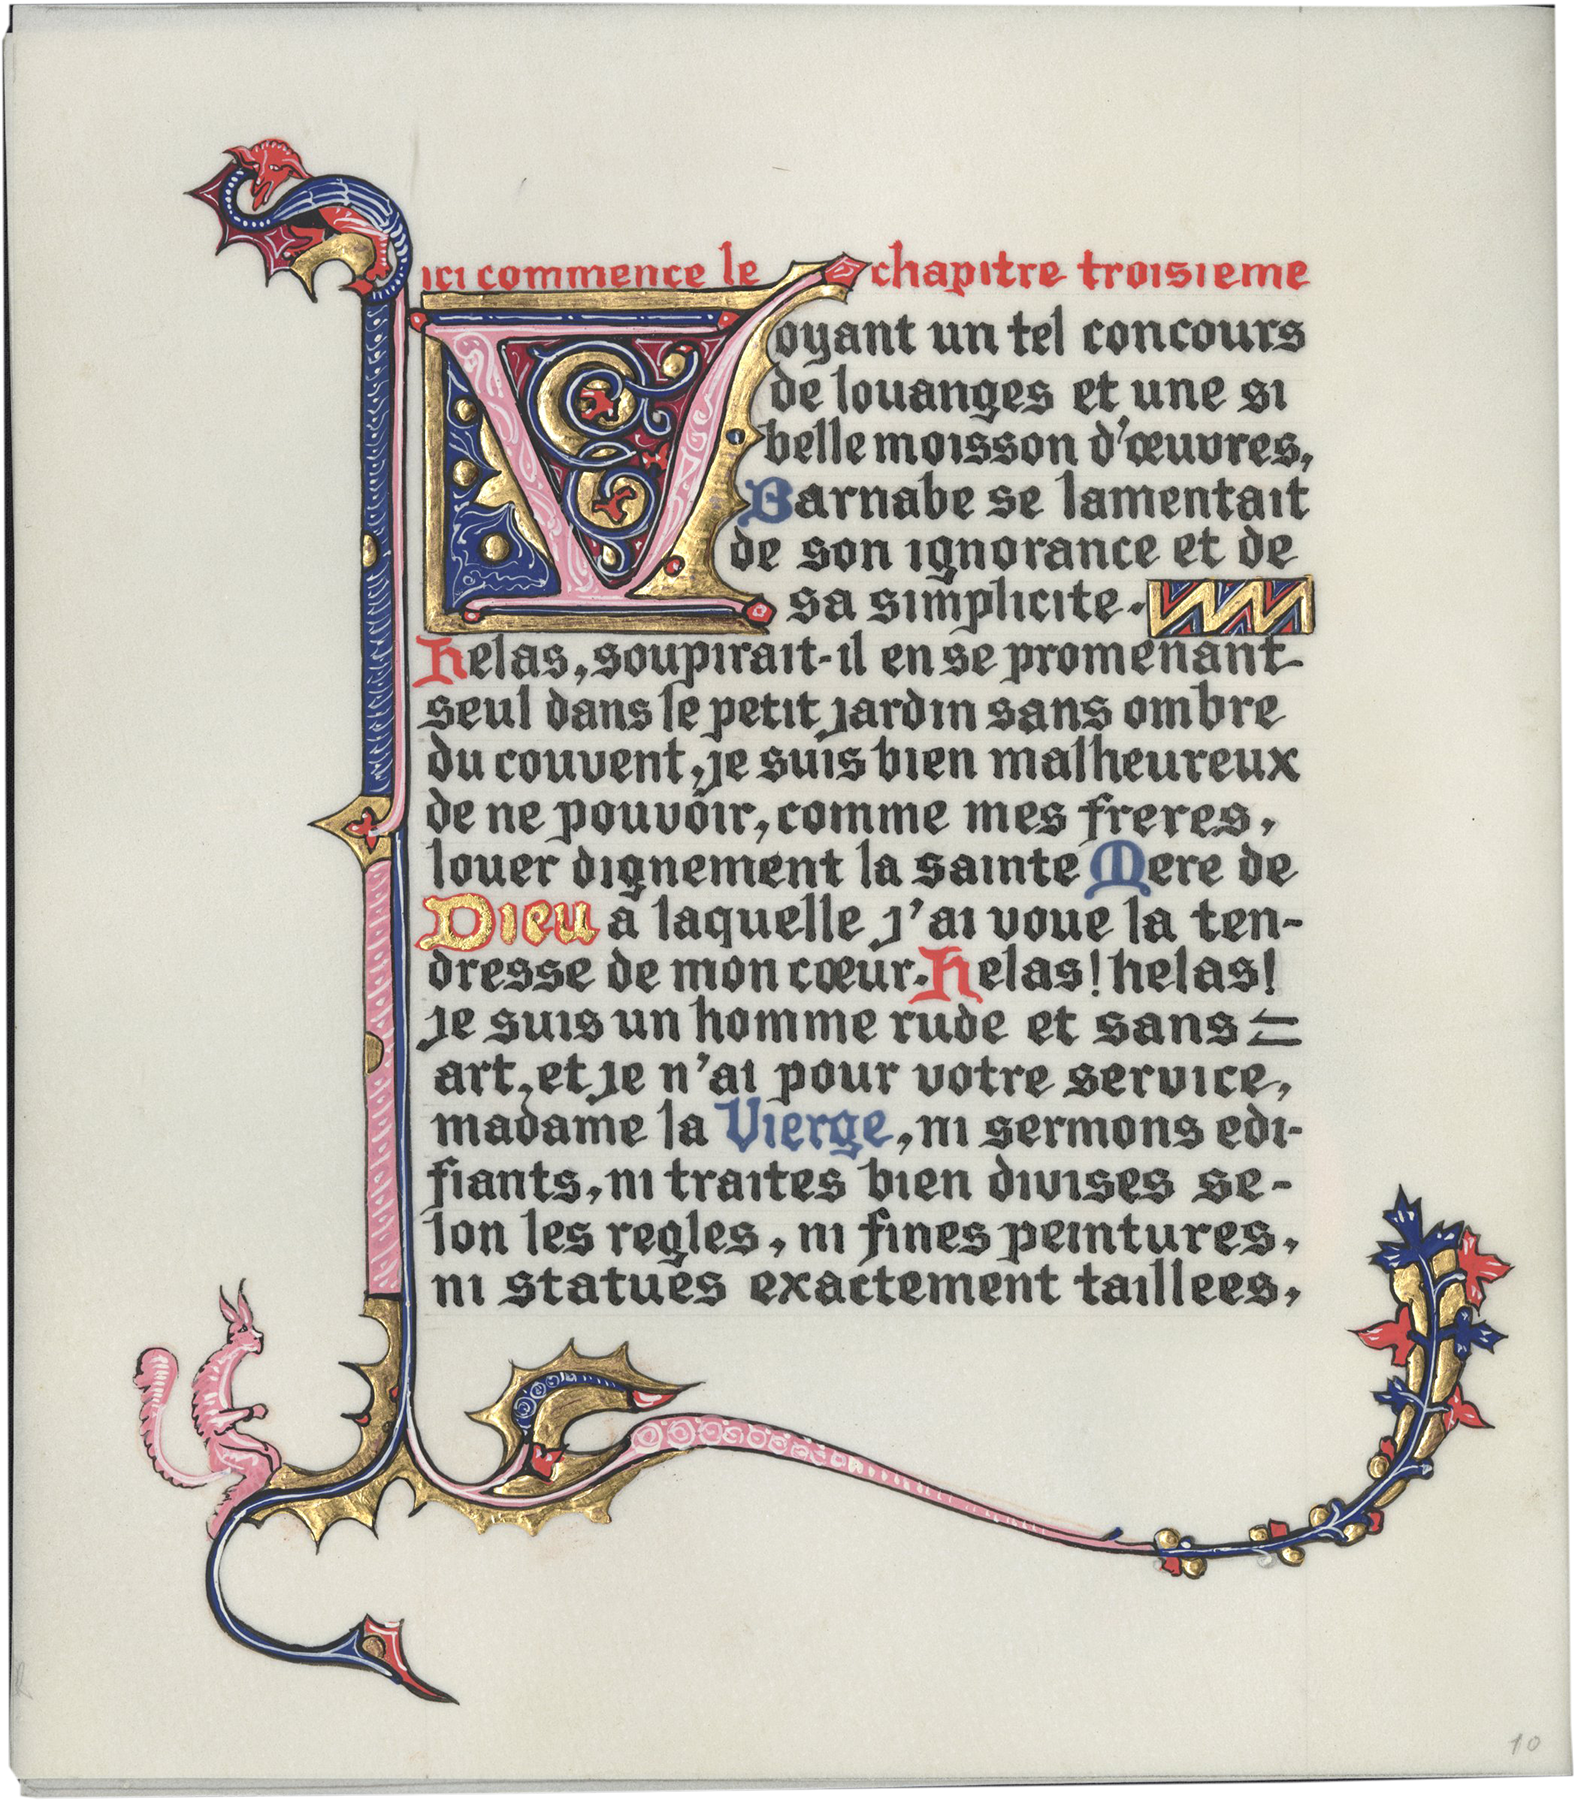 ici commence le chapitre troisieme
Voyant un tel concours
de louanges et une si
belle moisson d'œuvres,
Barnabe se lamentait
de son ignorance et de
sa simplicite.
helas, soupirait-il en se promenant
seul dans le petit jardin sans ombre
du couvent, je suis bien malheureux
de ne pouvoir, comme mes freres,
louer dignement la sainte Mere de
Dieu a laquelle j'ai voue la ten-
dresse de mon cœur. helas! helas!
je suis un homme rude et sans
art, et je n'ai pour votre service,
madame la Vierge, ni sermons edi-
fiants, ni traites bien divises se-
lon les regles, ni fines peintures,
ni statues exactement taillees,
10